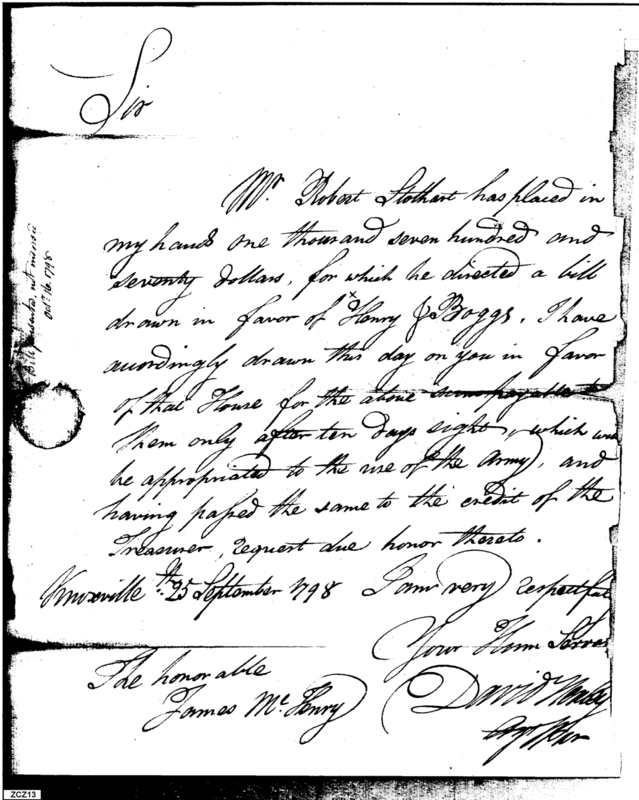 Sir
Mr. Robert Stothart has placed in
my hands one thousand seven hundred and
seventy dollars, for which he directed a bill
drawn in favor of Henry & Boggs. I have
accordingly drawn this day on you in favor
of that House for the above sum payable to
them only after ten days sight, which will
be appropriated to the use of the Army, and
having passed the same to the credit of the
Treasurer, request due honor thereto.
Knoxville 25 September 1798 I am very respectful
Your Hum Servan
The honorable
James McHenry
David Henley
Agt War
Bill presented, not
Oct. 16. 1798
ZCZ13